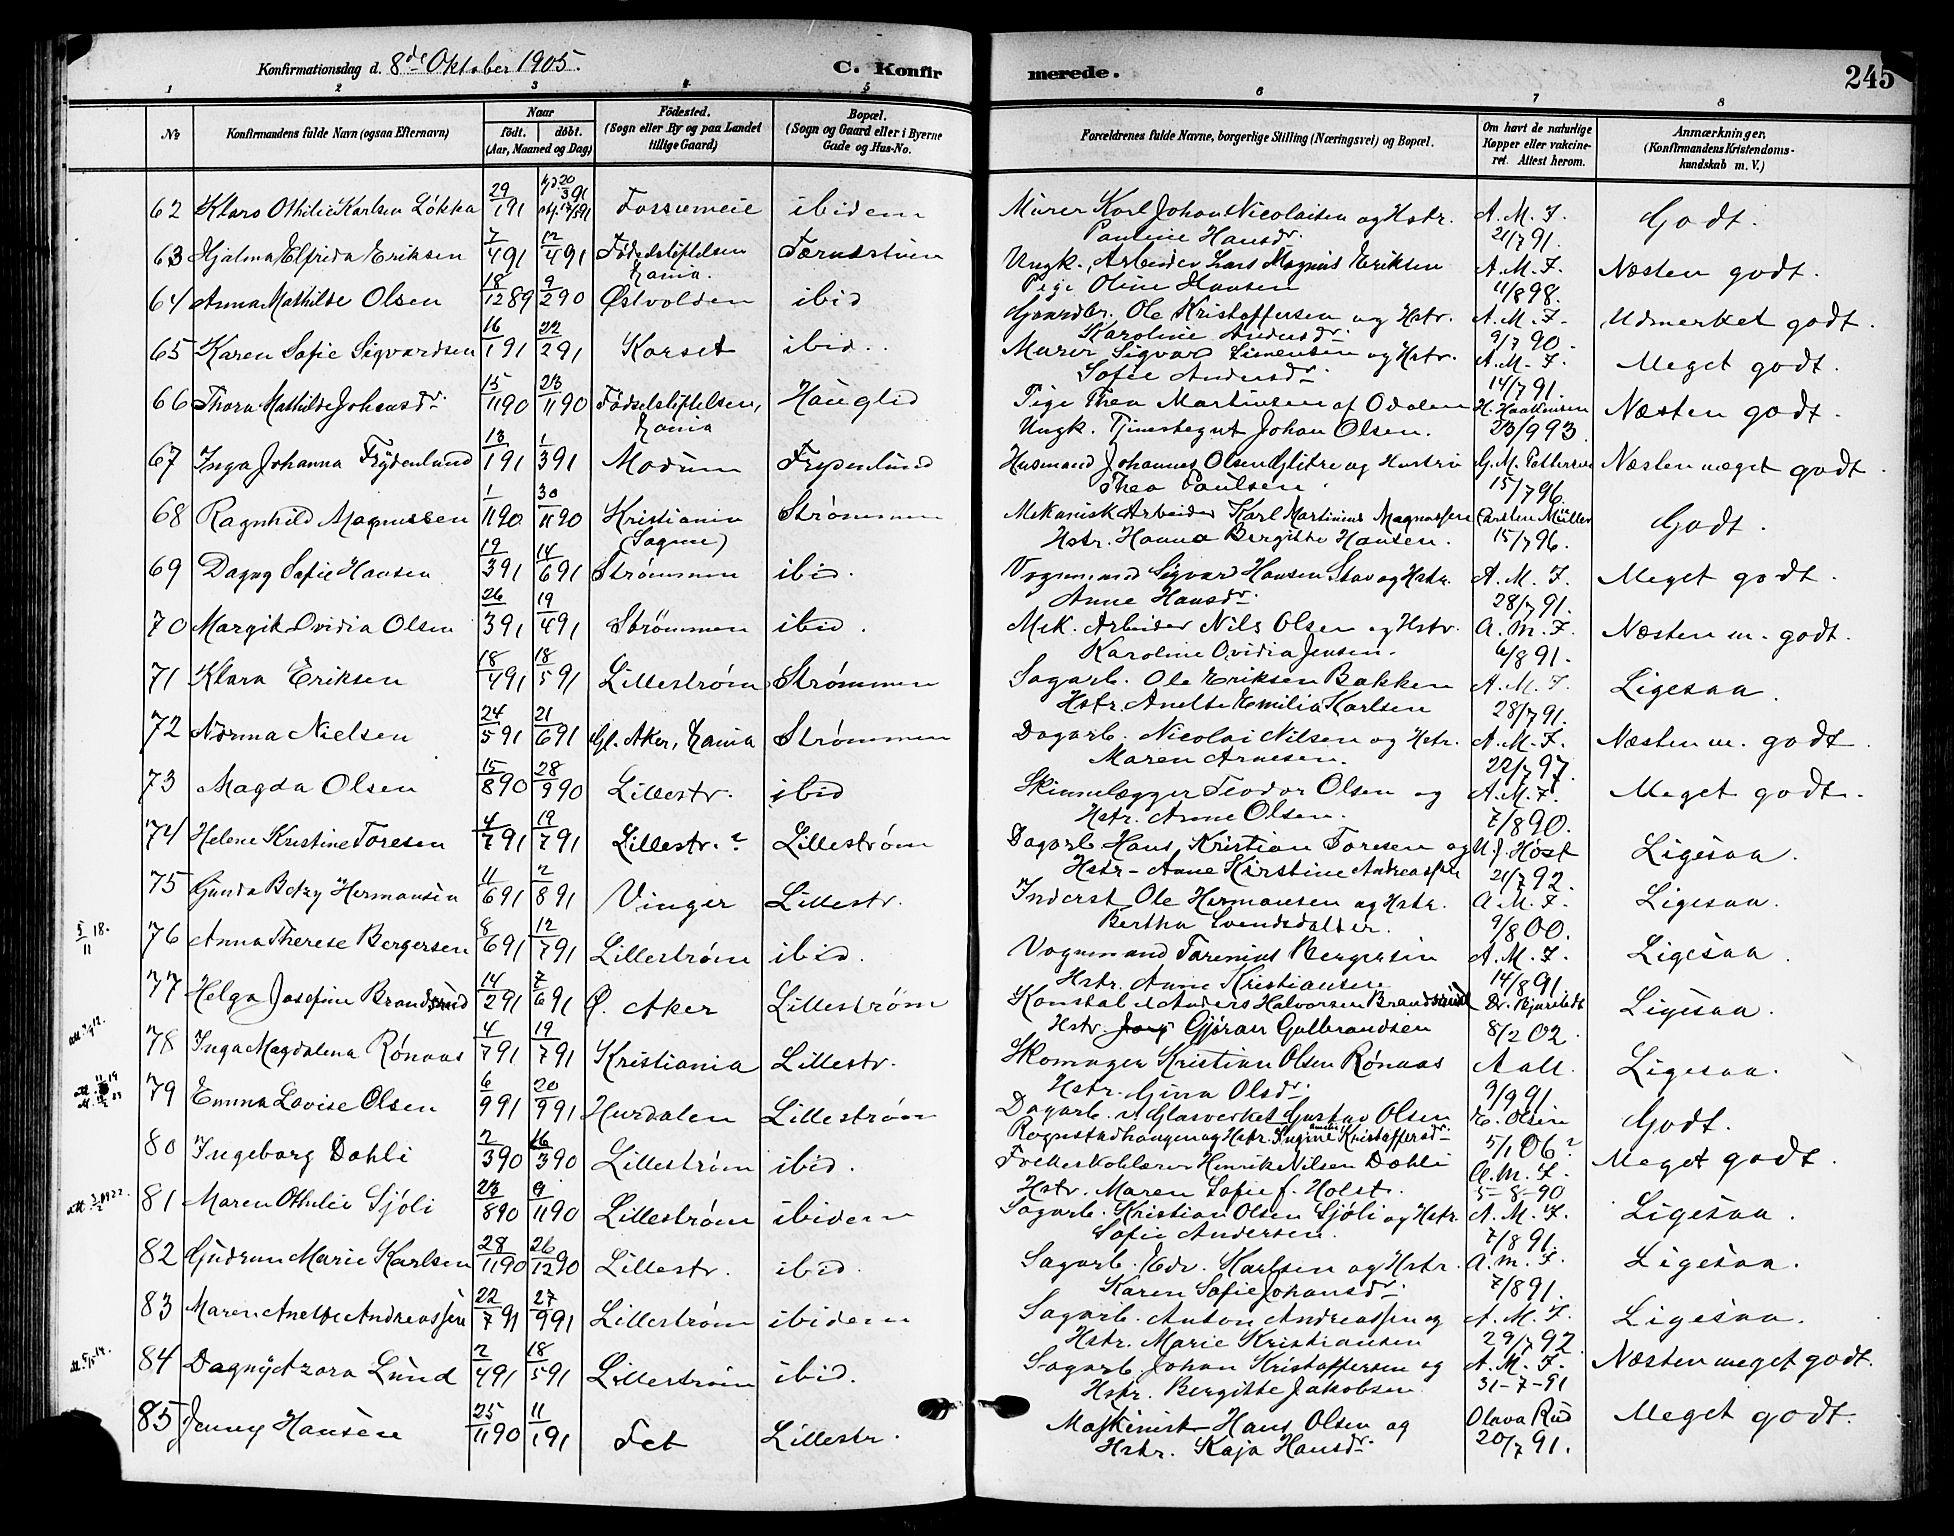 Konfirmationsdag d. 8de Oktober 1905.
C. Konfir
merede.
245
1 2 3 4 5 6 7 8
No
Konfirmandens fulde Navn (ogsaa Efternavn)
Naar
født. døbt.
(Aar, Maaned og Dag)
Fødested.
(Sogn eller By og paa Landet tillige Gaard)
Bopæl.
(Sogn og Gaard eller i Byerne Gade og Hus-No.
Forældrenes fulde Navne, borgerlige Stilling (Næringsvei) og Bopæl.
Om havt de naturlige Kopper eller vakcineret. Attest herom.
Anmærkninger.
(Konfirmandens Kristendomskundskab m. V.)
62 Klara Othilie Karlsen Løkka 29/1 91 Fossumeie ibidem Murer Karl Johan Nicolaisen og Hstr. Pauline Hansdr. A. M. F. 21/7 91. Godt.
63 Hjalma Elfrida Eriksen 7/4 91 12/4 91 Fødselsstiftelsen Kania. Ungk., Arbeider Lars Magnus Eriksen Pige Oline Hansen A. M. F. 11/8 98. Næsten godt.
64 Anna Mathilde Olsen 18/12 89 9/2 90 Østvolden ibid Gaardbr. Ole Kristoffersen og Hstr. Karoline Andersdr. A. M. F. 9/7 90. Udmerket godt.
65 Karen Sofie Sigvardsen 16/1 91 22/2 91 Korset ibid. Murer Sigvard Simensen og Hstr. Sofie Andersdr. A. M. F. 14/7 91. Meget godt.
66 Thora Mathilde Johansdr. 15/11 90 23/11 90 Fødselsstiftelsen, Kania Hauglid Pige Thea Martinsen af Odalen Ungk. Tjenestegut Johan Olsen. H. Haakonsen 23/9 93. Næsten godt.
67 Inga Johanna Frydenlund 13/1 91 1/3 91 Modum Frydenlund Husmand Johannes Olsen Glitre og Hustru Thea Paulsen. G. M. Pettersen 15/7 96. Næsten meget godt.
68 Ragnhild Magnussen 1/11 90 30/11 90 Kristiania (Sagene) Strømmen Mekanisk Arbeider Karl Martinius Magnussen Hstr. Hanna Bergitte Hansen. Carsten Müller 15/7 96. Godt.
69 Dagny Sofie Hansen 19/3 91 14/6 91 Strømmen ibid. Vognmand Sigvard Hansen Stav og Hstr. Anne Hansdr. A. M. F. 28/7 91. Meget godt.
70 Margit Ovidia Olsen 26/3 91 19/4 91 Strømmen ibid. Mek. Arbeider Nils Olsen og Hstr. Karoline Ovidia Jensen. A. M. F. 6/8 91. Næsten m. godt.
71 Klara Eriksen 18/4 91 18/5 91 Lillestrøm Strømmen Sagarb. Ole Eriksen Bakken Hstr. Anette Emilia Karlsen A. M. F. 28/7 91. Ligesaa.
72 Norma Nielsen 24/5 91 21/6 91 Gl. Aker, Kania Strømmen Dagarb. Nicolai Nilsen og Hstr. Maren Arnesen. A. M. F. 22/7 97. Næsten m. godt.
73 Magda Olsen 15/8 90 28/9 90 Lillestr. ibid Skinnelægger Teodor Olsen og Hstr. Anne Olsen. A. M. F. 7/8 90. Meget godt.
74 Helene Kristine Toresen 4/7 91 19/7 91 Lillestr.? Lillestrøm Dagarb Hans Kristian Toresen og Hstr. Anne Kirstine Andreassen J. Høst 21/7 92. Ligesaa.
75 Gunda Betzy Hermansen 11/6 91 2/8 91 Vinger Lillestr. Inderst Ole Hermansen og Hstr. Bertha Svendsdatter. A. M. F. 9/8 00. Ligesaa.
5/11 18. 76 Anna Therese Bergersen 8/6 91 12/7 91 Lillestrøm ibid. Vognmand Torenius Bergersen Hstr. Anne Kristiansen A. M. F. 14/8 91. Ligesaa.
77 Helga Josefine Brandsrud 14/2 91 7/6 91 Ø. Aker Lillestrøm Konstabel Anders Halvorsen Brandsrud Hstr. Gjøran Gulbrandsen Dr. Bjørnstedt 8/2 02. Ligesaa.
78 Inga Magdalena Rønaas 4/7 91 19/7 91 Kristiania Lillestr. Skomager Kristian Olsen Rønaas Hstr. Gina Olsdr. Aall. 9/9 91. Ligesaa.
79 Emma Lovise Olsen 6/9 91 20/9 91 Hurdalen Lillestrøm Dagarb. v. Glasverket Gustav Olsen Rognstadhaugen og Hstr. Ingine Kristoffersdr. E. Olsen 5/1 06? Godt.
80 Ingeborg Dahli 2/3 90 16/3 90 Lillestrøm ibid. Folkeskolelærer Henrik Nilsen Dahli Hstr. Maren Sofie f. Holst. A. M. F. 5-8-90 Meget godt.
81 Maren Othilie Sjøli 23/8 90 9/11 90 Lillestrøm ibidem Sagarb. Kristian Olsen Sjøli og Hstr. Sofie Andersen. A. M. F. 7/8 91. Ligesaa.
82 Gudrun Marie Karlsen 28/11 90 26/12 90 Lillestr. ibid. Sagarb. Edv. Karlsen og Hstr. Karen Sofie Johansdr. A. M. F. 7/8 91. Ligesaa.
83 Maren Anette Andreassen 22/7 91 27/9 91 Lillestrøm ibidem Sagarb. Anton Andreassen og Hstr. Marie Kristiansen A. M. F. 29/7 92. Ligesaa.
84 Dagny Azora Lund 2/4 91 18/5 91 Lillestrøm ibid. Sagarb. Johan Kristoffersen og Hstr. Bergitte Jakobsen A. M. F. 31-7-91 Næsten meget godt.
85 Jenny Hansen 25/11 90 11/1 91 Fet Lillestr. Maskinist Hans Olsen og Hstr. Kaja Hansdr. Olava Rud 20/7 91. Meget godt.